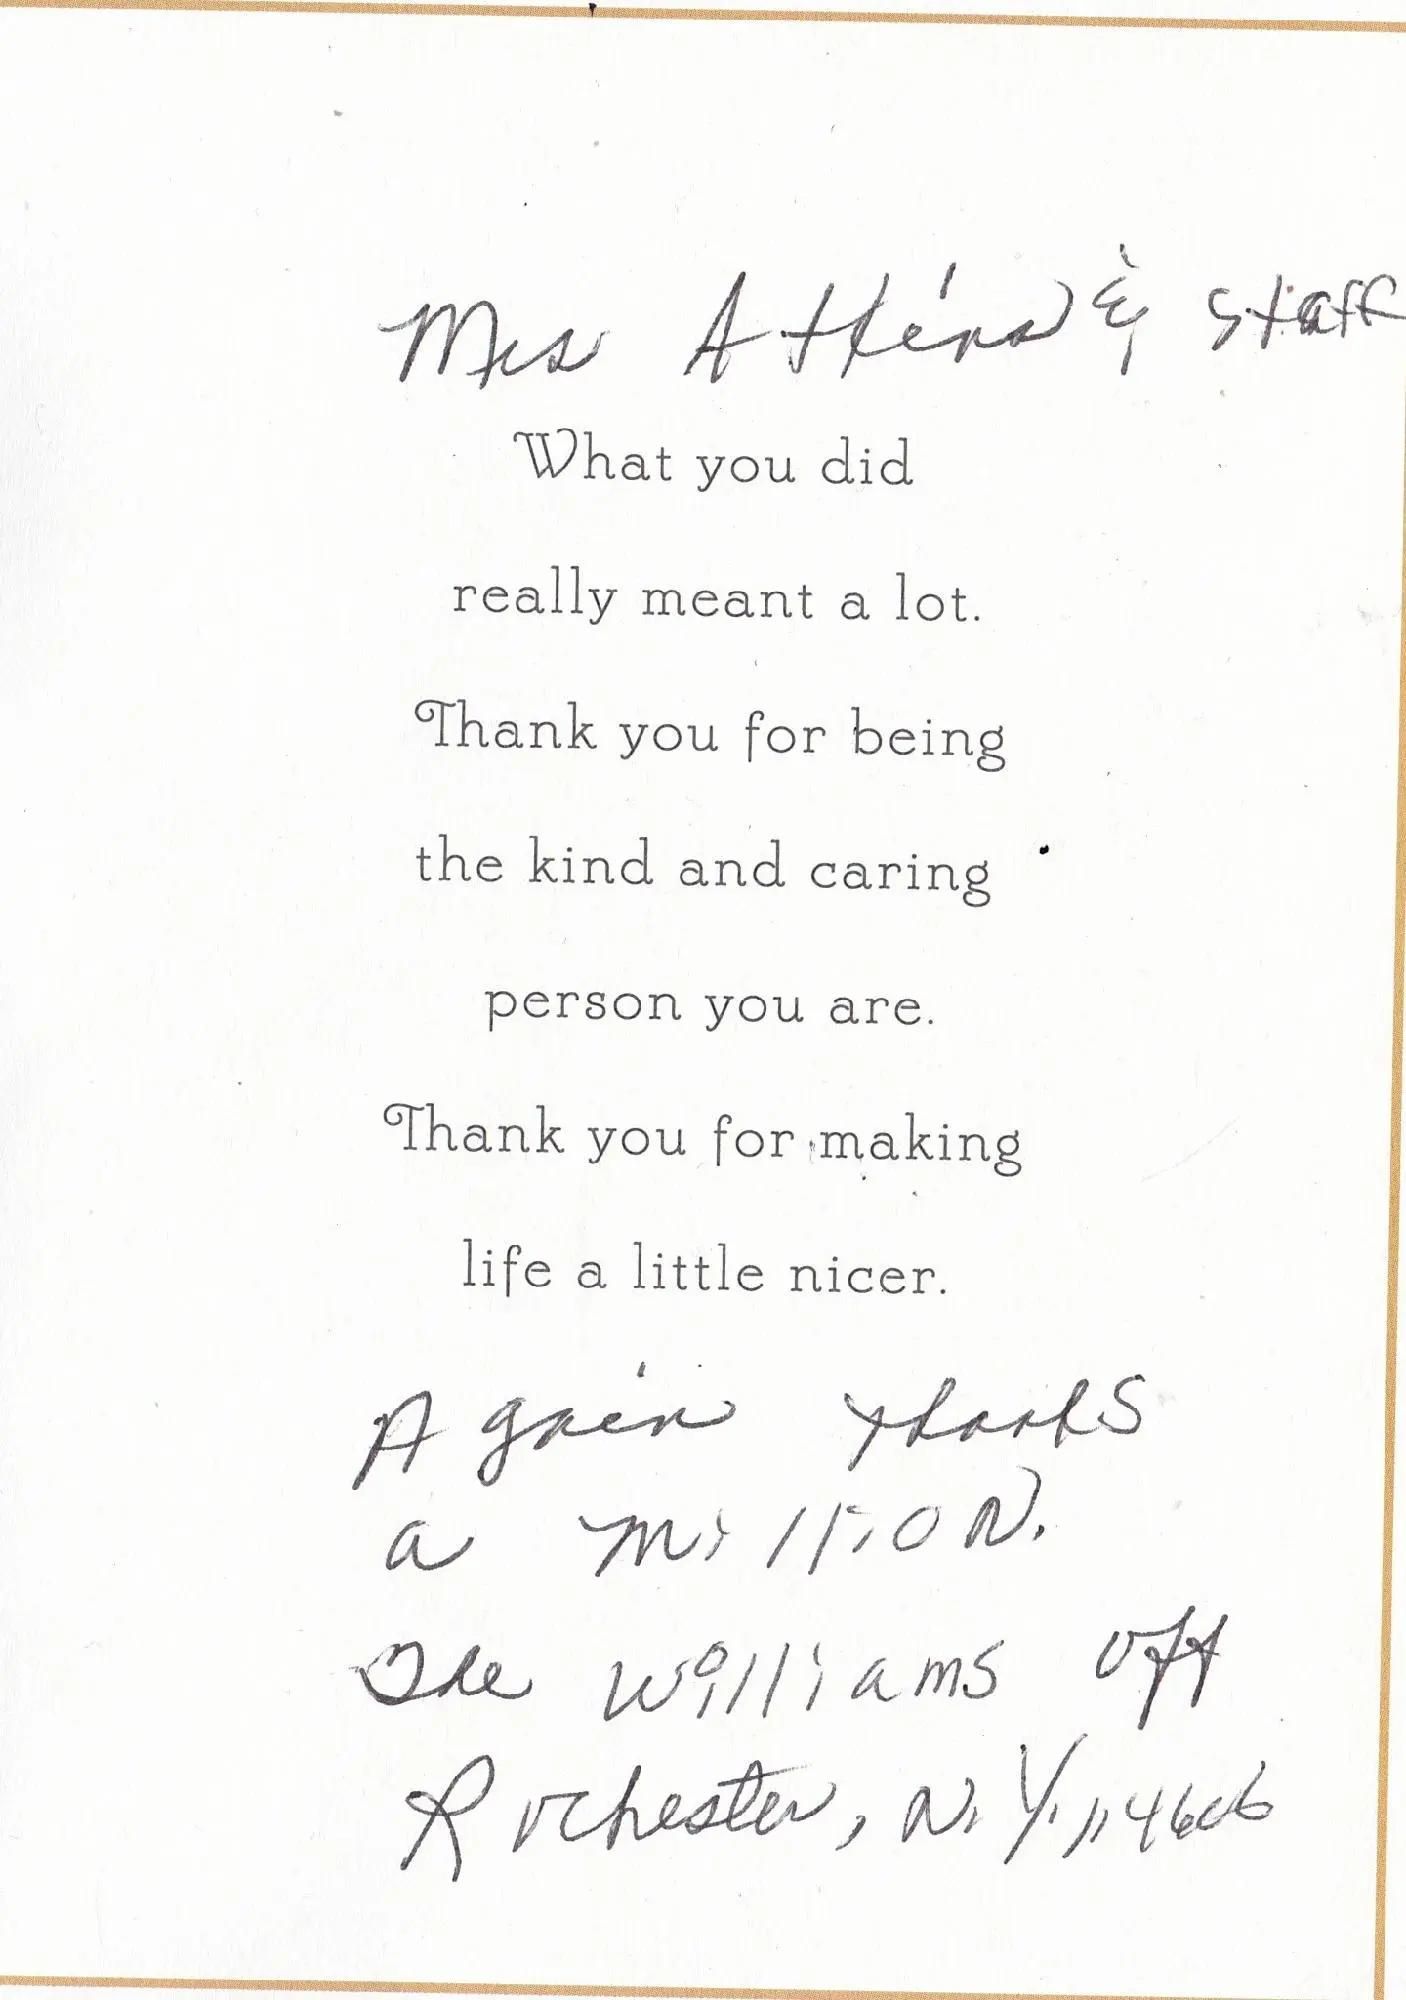 Mrs Atkins & staff
What you did
really meant a lot.
Thank you for being
the kind and caring
person you are.
Thank you for making
life a little nicer.
Again thanks
a million.
The Williams off
Rochester, N.Y., 14606